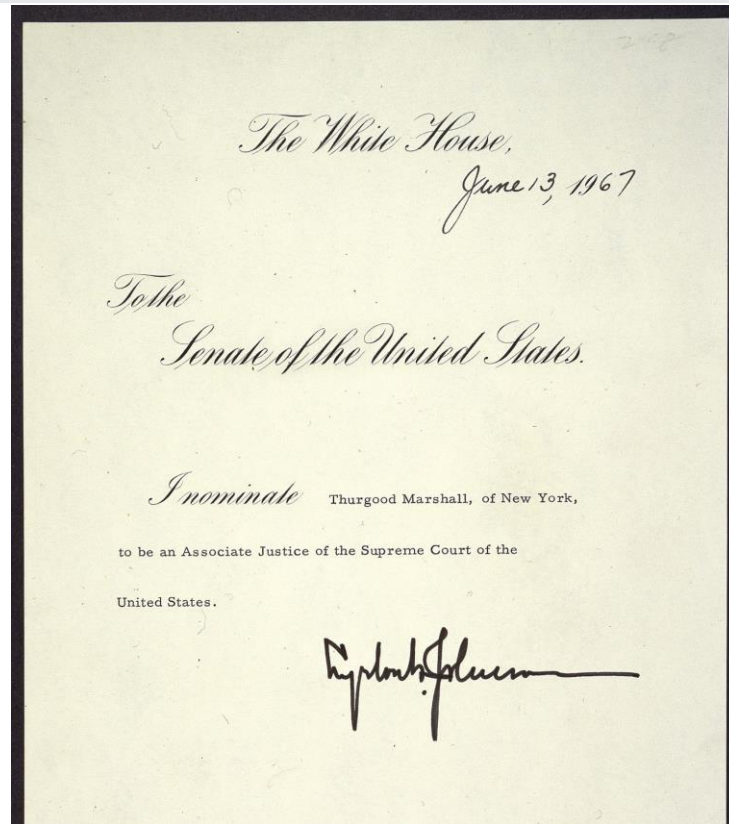 The White House,
June 13, 1967
To the
Senate of the United States.
I nominate Thurgood Marshall, of New York,
to be an Associate Justice of the Supreme Court of the
United States.
Lyndon B. Johnson